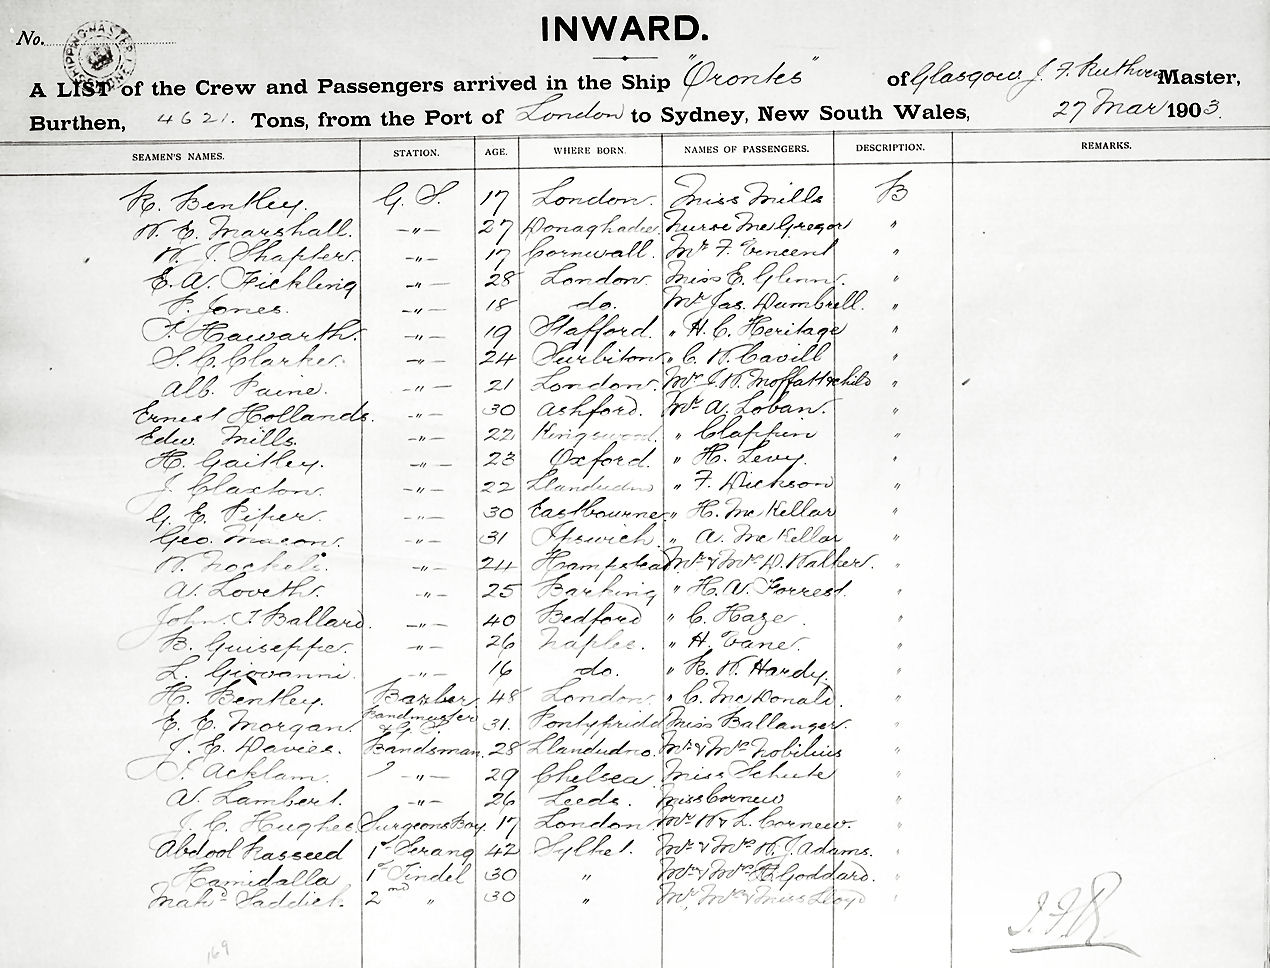 INWARD.
No.
A LIST of the Crew and Passengers arrived in the Ship "Orontes" of Glasgow J. F. Ruthven Master,
Burthen, 4621. Tons, from the Port of London to Sydney, New South Wales, 27 Mar 1903.
SEAMEN'S NAMES. STATION. AGE. WHERE BORN. NAMES OF PASSENGERS. DESCRIPTION. REMARKS.
R. Bentley. G. S. 17 London. Miss Mills B
W. E. Marshall. -"- 27 Donaghadee Nurse McGregor "
W. J. Shapter. -"- 17 Cornwall. Mr F. Vincent "
E. A. Fickling -"- 28 London. Miss E. Glenn. "
P. Jones. -"- 18 do. Mr Jas. Dumbrell. "
T. Haworth. -"- 19 Stafford. " H. C. Heritage "
S. C. Clarke. -"- 24 Surbiton " C. W. Cavill "
Alb. Paine. -"- 21 London. Mrs J. W. Moffatt & child "
Ernest Hollands. -"- 30 Ashford. Mr A. Loban. "
Edw. Mills. -"- 22 Kingswood. " Clappin "
H. Gaitley. -"- 23 Oxford. " H. Levy. "
J. Claxton. -"- 22 Llandudno " F. Dickson "
G. E. Piper. -"- 30 Eastbourne. " H. McKellar "
Geo. Macon. -"- 31 Ipswich. " A. McKellar "
W. Nocholi. -"- 24 Hampstead Mr & Mrs D. Walker. "
A. Loveth. -"- 25 Barking " H. A. Forrest. "
John T. Ballard. -"- 40 Bedford " C. Haze. "
B. Guiseppe. -"- 26 Naples. " H. Vane. "
L. Giovanni. -"- 16 do. " R. W. Hardy. "
H. Bentley. Barber 48 London. " C. McDonald. "
E. E. Morgan. Bandmaster & G. S. 31. Pontypridd Miss Ballanger. "
J. E. Davies. Bandsman. 28 Llandudno. Mr & Mrs Nobilius "
T. Acklam. -"- 29 Chelsea. Miss Schute "
A. Lambert. -"- 26 Leeds. Miss Cornew "
J. C. Hughes Surgeons Boy. 17 London. Mr W & L. Cornew. "
Abdool Rasseed 1st Serang 42 Sylhet. Mr & Mrs W. J. Adams. "
Hamidalla 1st Tindel 30 " Mr & Mrs Goddard. "
Mahd Saddick. 2nd " 30 " Mr, Mrs & Miss Lloyd "
J. F. R.
169